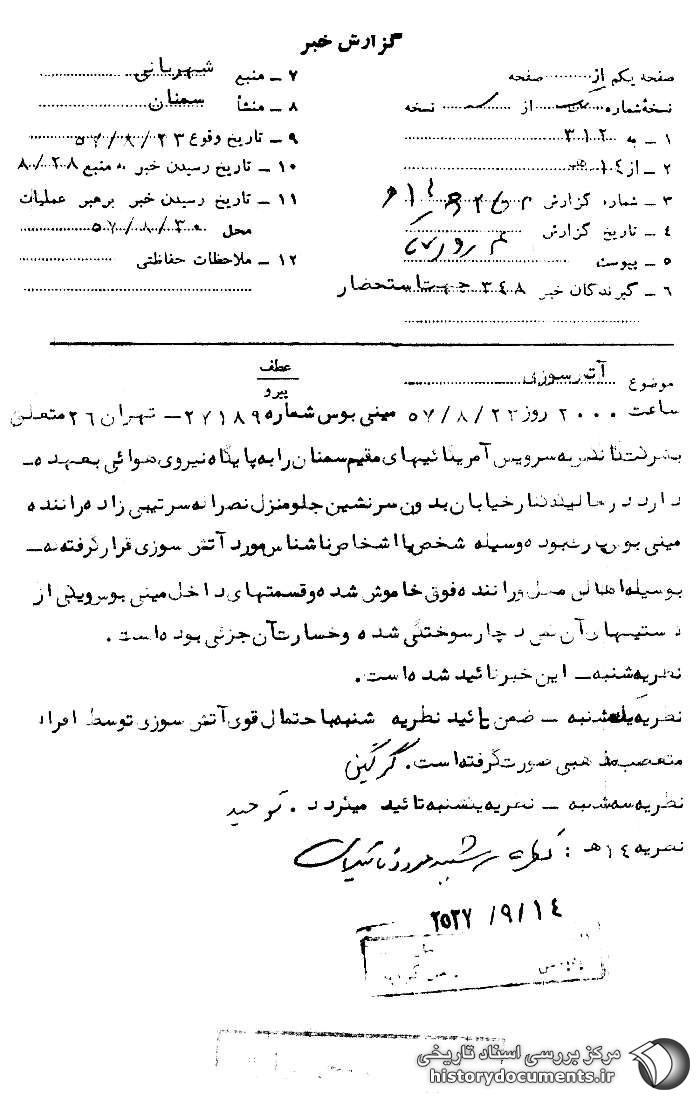 گزارش خبر
صفحه یکم از ........ صفحه
نسخه شماره ..... از ..... نسخه
۱ ـ به ۳۱۲
۲ ـ از ۱۴ ه
۳ ـ شماره گزارش
۴ ـ تاریخ گزارش
۵ ـ پیوست
۶ ـ گیرندگان خبر ۳۴۸ جهت استحضار
۷ ـ منبع شهربانی
۸ ـ منشأ سمنان
۹ ـ تاریخ وقوع ۵۷/۸/۲۳
۱۰ ـ تاریخ رسیدن خبر به منبع ۸/۲۸
۱۱ ـ تاریخ رسیدن خبر برهبر عملیات
محل ۵۷/۸/۳۰
۱۲ ـ ملاحظات حفاظتی
موضوع آتش سوزی
عطف
پیرو
ساعت ۲۰۰۰ روز ۵۷/۸/۲۳ مینی بوس شماره ۲۷۱۸۹ ـ تهران ۲۶ متعلق
بشرکت که سرویس آمریکائیهای مقیم سمنان را به پایگاه نیروی هوائی بعهده ـ
دارد در حالیکه کنار خیابان بدون سرنشین جلو منزل نصراله سرتیپی زاده راننده
مینی بوس پارک بوده وسیله شخص یا اشخاص ناشناس مورد آتش سوزی قرار گرفته که ـ
بوسیله اهالی محل و راننده فوق خاموش شده و قسمتهای داخل مینی بوس و یکی از
لاستیکهای آن دچار سوختگی شده و خسارت آن جزئی بوده است .
نظریه شنبه ـ این خبر تائید شده است .
نظریه یکشنبه ـ ضمن تائید نظریه شنبه با احتمال قوی آتش سوزی توسط افراد
متعصب مذهبی صورت گرفته است . گرگین
نظریه سه شنبه ـ نظریه یکشنبه تائید میگردد . توحید
نظریه ۱۴ ه :
۲۵۳۷/۹/۱۴
مرکز بررسی اسناد تاریخی
historydocuments.ir